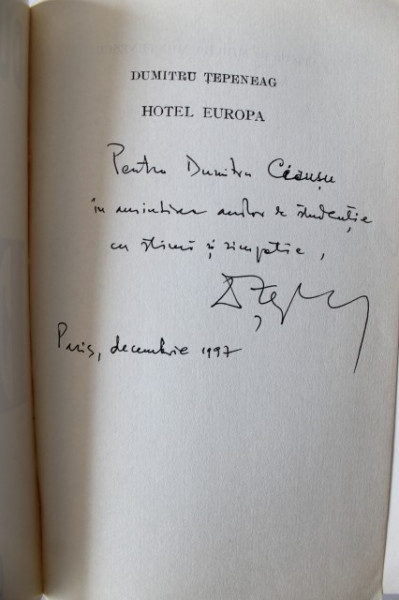 DUMITRU ȚEPENEAG
HOTEL EUROPA
Pentru Dumitru
în amintirea anilor de studenție
cu stimă și simpatie,
DȚep
Paris, decembrie 1997